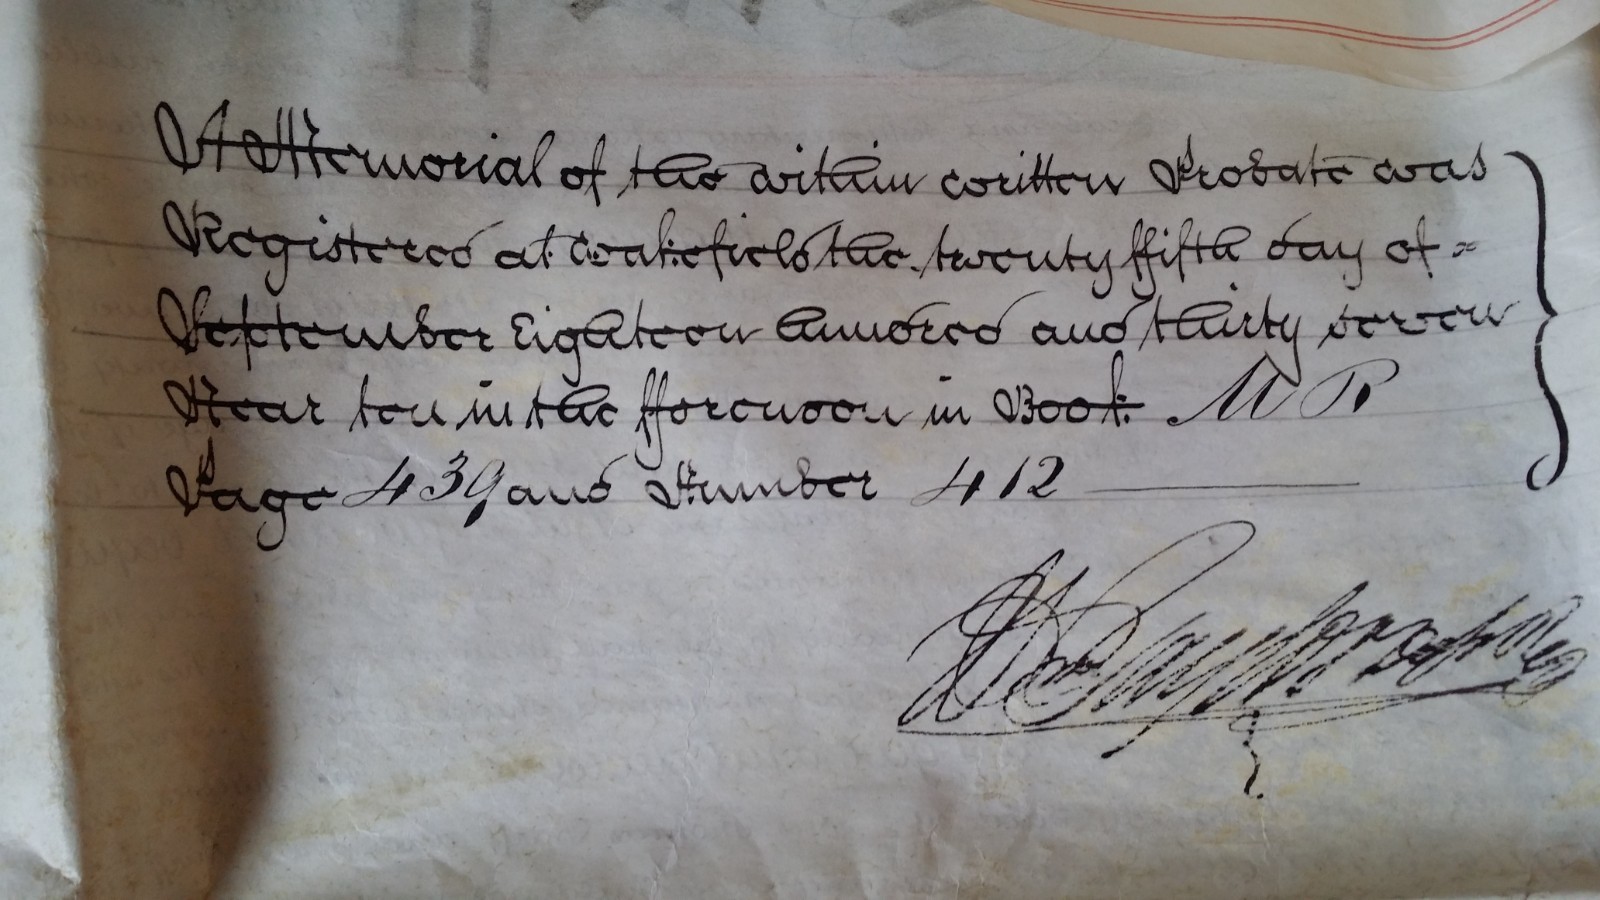 A Memorial of the within written Probate was
Registered at Wakefield the twenty ffifth day of =
September Eighteen hundred and thirty seven
Near ten in the fforenoon in Book M R
Page 439 and Number 412